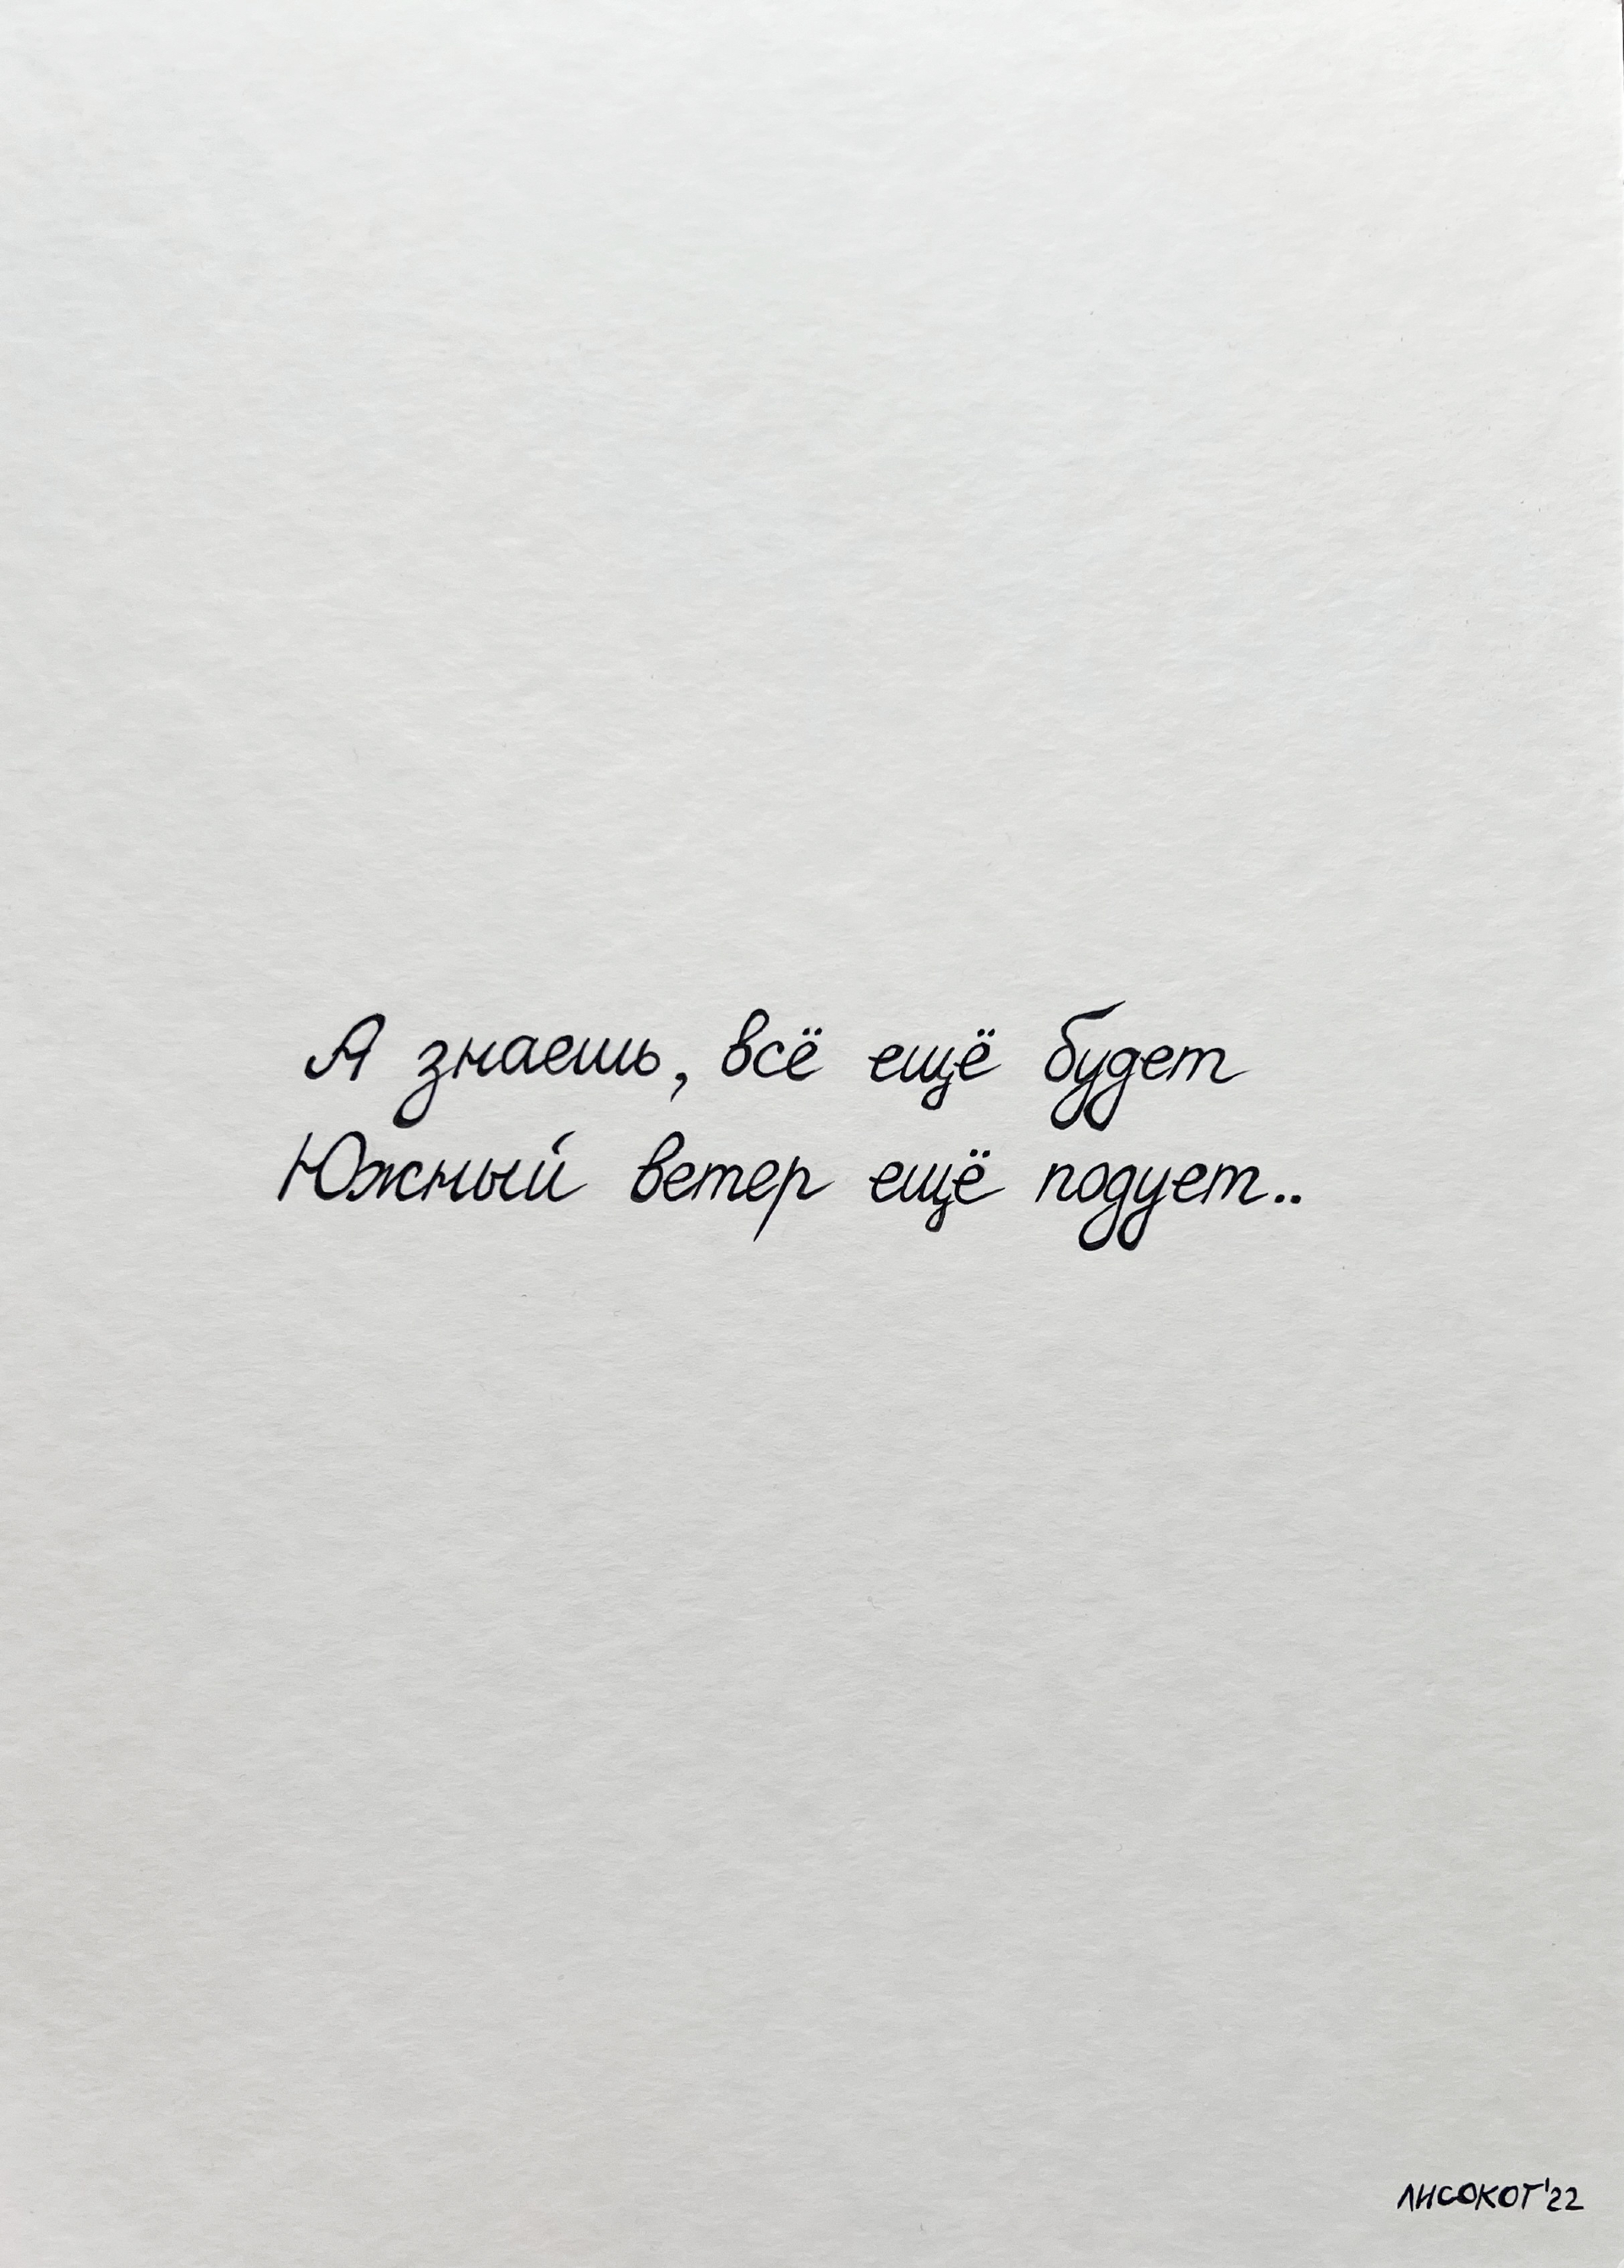 А знаешь, всё ещё будет
Южный ветер ещё подует..
ЛИСОКОТ'22